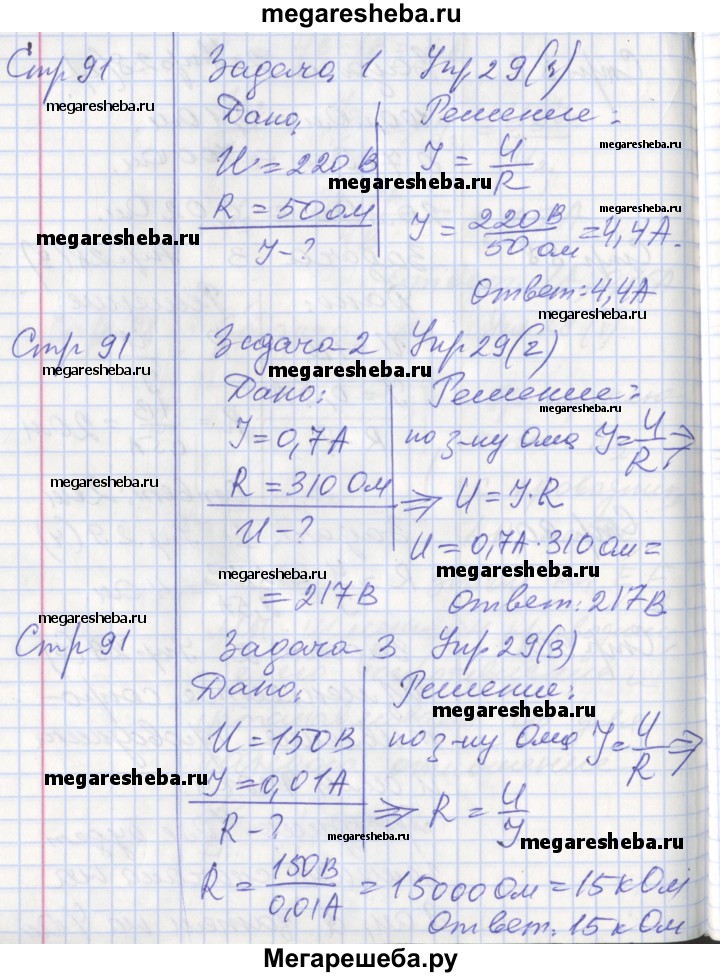 megaresheba.ru
Стр 91 Задача 1 Упр 29(1)
megaresheba.ru megaresheba.ru
Дано: Решение:
U = 220 В I = U/R
megaresheba.ru
R = 50 Ом I = 220 В / 50 Ом = 4,4 А.
megaresheba.ru megaresheba.ru
I - ?
Ответ: 4,4 А
megaresheba.ru
Стр 91 Задача 2 Упр 29(2)
megaresheba.ru megaresheba.ru
Дано: Решение:
megaresheba.ru
I = 0,7 А по з-ну Ома I = U/R ⇒
megaresheba.ru
R = 310 Ом ⇒ U = I · R
U - ? U = 0,7 А · 310 Ом =
megaresheba.ru megaresheba.ru
= 217 В Ответ: 217 В
megaresheba.ru
Стр 91 Задача 3 Упр 29(3)
Дано: Решение:
megaresheba.ru
U = 150 В по з-ну Ома I = U/R ⇒
megaresheba.ru
I = 0,01 А ⇒ R = U/I
R - ?
megaresheba.ru megaresheba.ru
R = 150 В / 0,01 А = 15000 Ом = 15 кОм
megaresheba.ru
Ответ: 15 кОм
Мегарешеба.ру